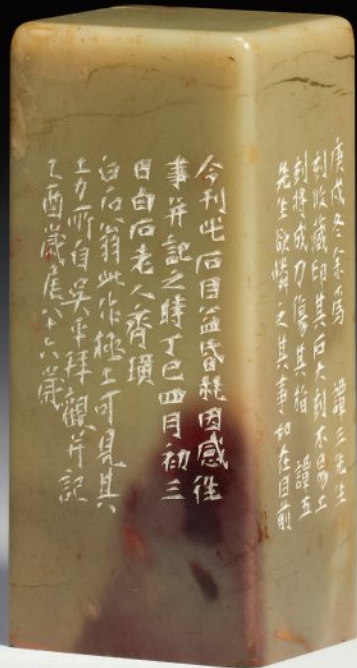 庚戌冬余為 譚三先生
刻此藏印其石大刻不易
刻將成刀傷其指 譚五
先生欲憐之其事如在目前
今刊此石目益昏眊因感往
事并記之時丁巳四月初三
日白石老人齊璜
白石翁此作極工可見其
工力所自吳平拜觀并記
乙酉歲八十六歲